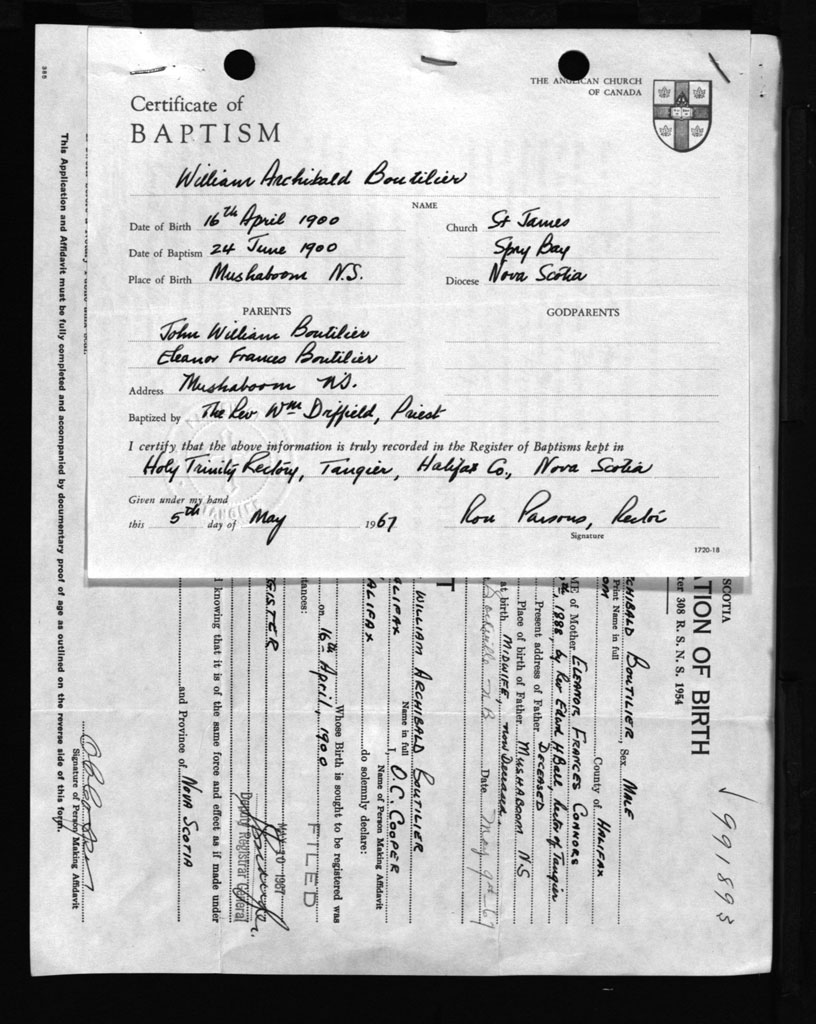 THE ANGLICAN CHURCH
OF CANADA
Certificate of
BAPTISM
William Archibald Boutilier
NAME
Date of Birth 16th April 1900
Date of Baptism 24 June 1900
Place of Birth Mushaboom N.S.
Church St James
Spry Bay
Diocese Nova Scotia
PARENTS
John William Boutilier
Eleanor Frances Boutilier
Address Mushaboom NS.
Baptized by The Rev Wm Driffield, Priest
GODPARENTS
I certify that the above information is truly recorded in the Register of Baptisms kept in
Holy Trinity Rectory, Tangier, Halifax Co., Nova Scotia
Given under my hand
this 5th day of May 1967
Ron Parsons, Rector
Signature
1720-18
385
This Application and Affidavit must be fully completed and accompanied by documentary proof of age as outlined on the reverse side of this form.
991893
SCOTIA
TION OF BIRTH
ter 308 R. S. N. S. 1954
CHIBALD BOUTILIER, Sex MALE
Print Name in full
County of HALIFAX
ME of Mother ELEANOR FRANCES CONNORS
th, 1888, by Rev Edwd H Ball, Rector of Tangier
Present address of Father DECEASED
Place of birth of Father MUSHABOOM, NS
at birth MIDWIFE, NOW DECEASED.
Sackville N.B. Date May 9th 67
T
WILLIAM ARCHIBALD BOUTILIER
Name in full
ALIFAX I, O.C. COOPER
Name of Person Making Affidavit
ALIFAX do solemnly declare:
Whose Birth is sought to be registered was
on 16th April, 1900
tances:
FILED
ISTER
MAY 10 1967
Deputy Registrar General
knowing that it is of the same force and effect as if made under
and Province of NOVA SCOTIA
Signature of Person Making Affidavit